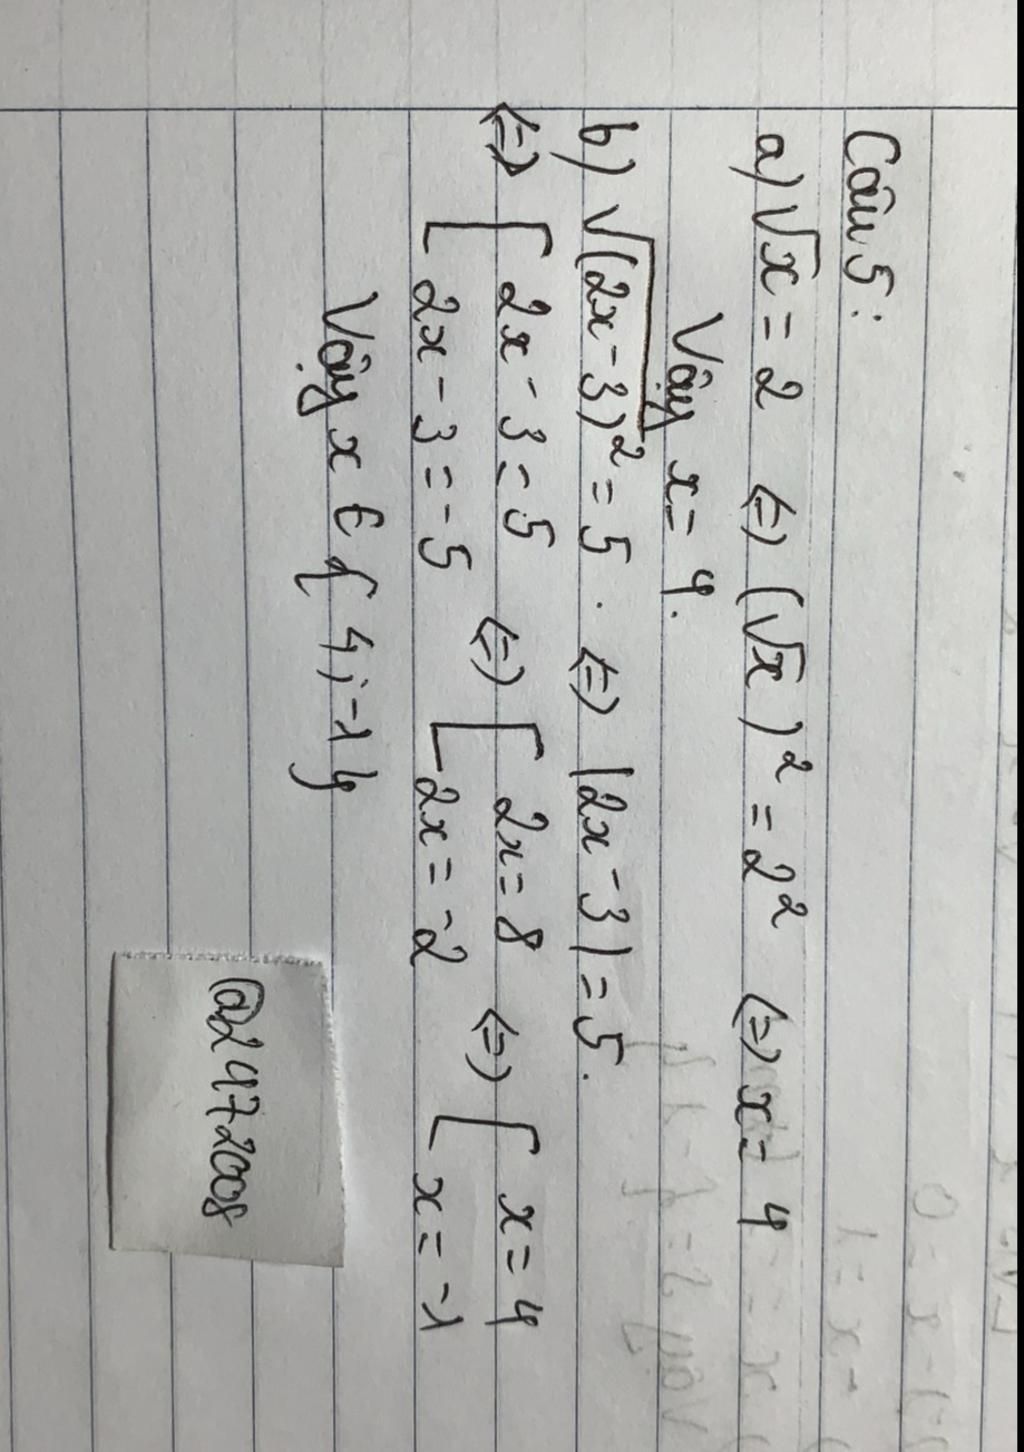 Câu 5:
a) √x = 2 <=> (√x)² = 2² <=> x = 4
Vậy x = 4.
b) √(2x - 3)² = 5. <=> |2x - 3| = 5.
<=> [ 2x - 3 = 5 <=> [ 2x = 8 <=> [ x = 4
2x - 3 = -5 2x = -2 x = -1
Vậy x ∈ { 4; -1 }
@2472008